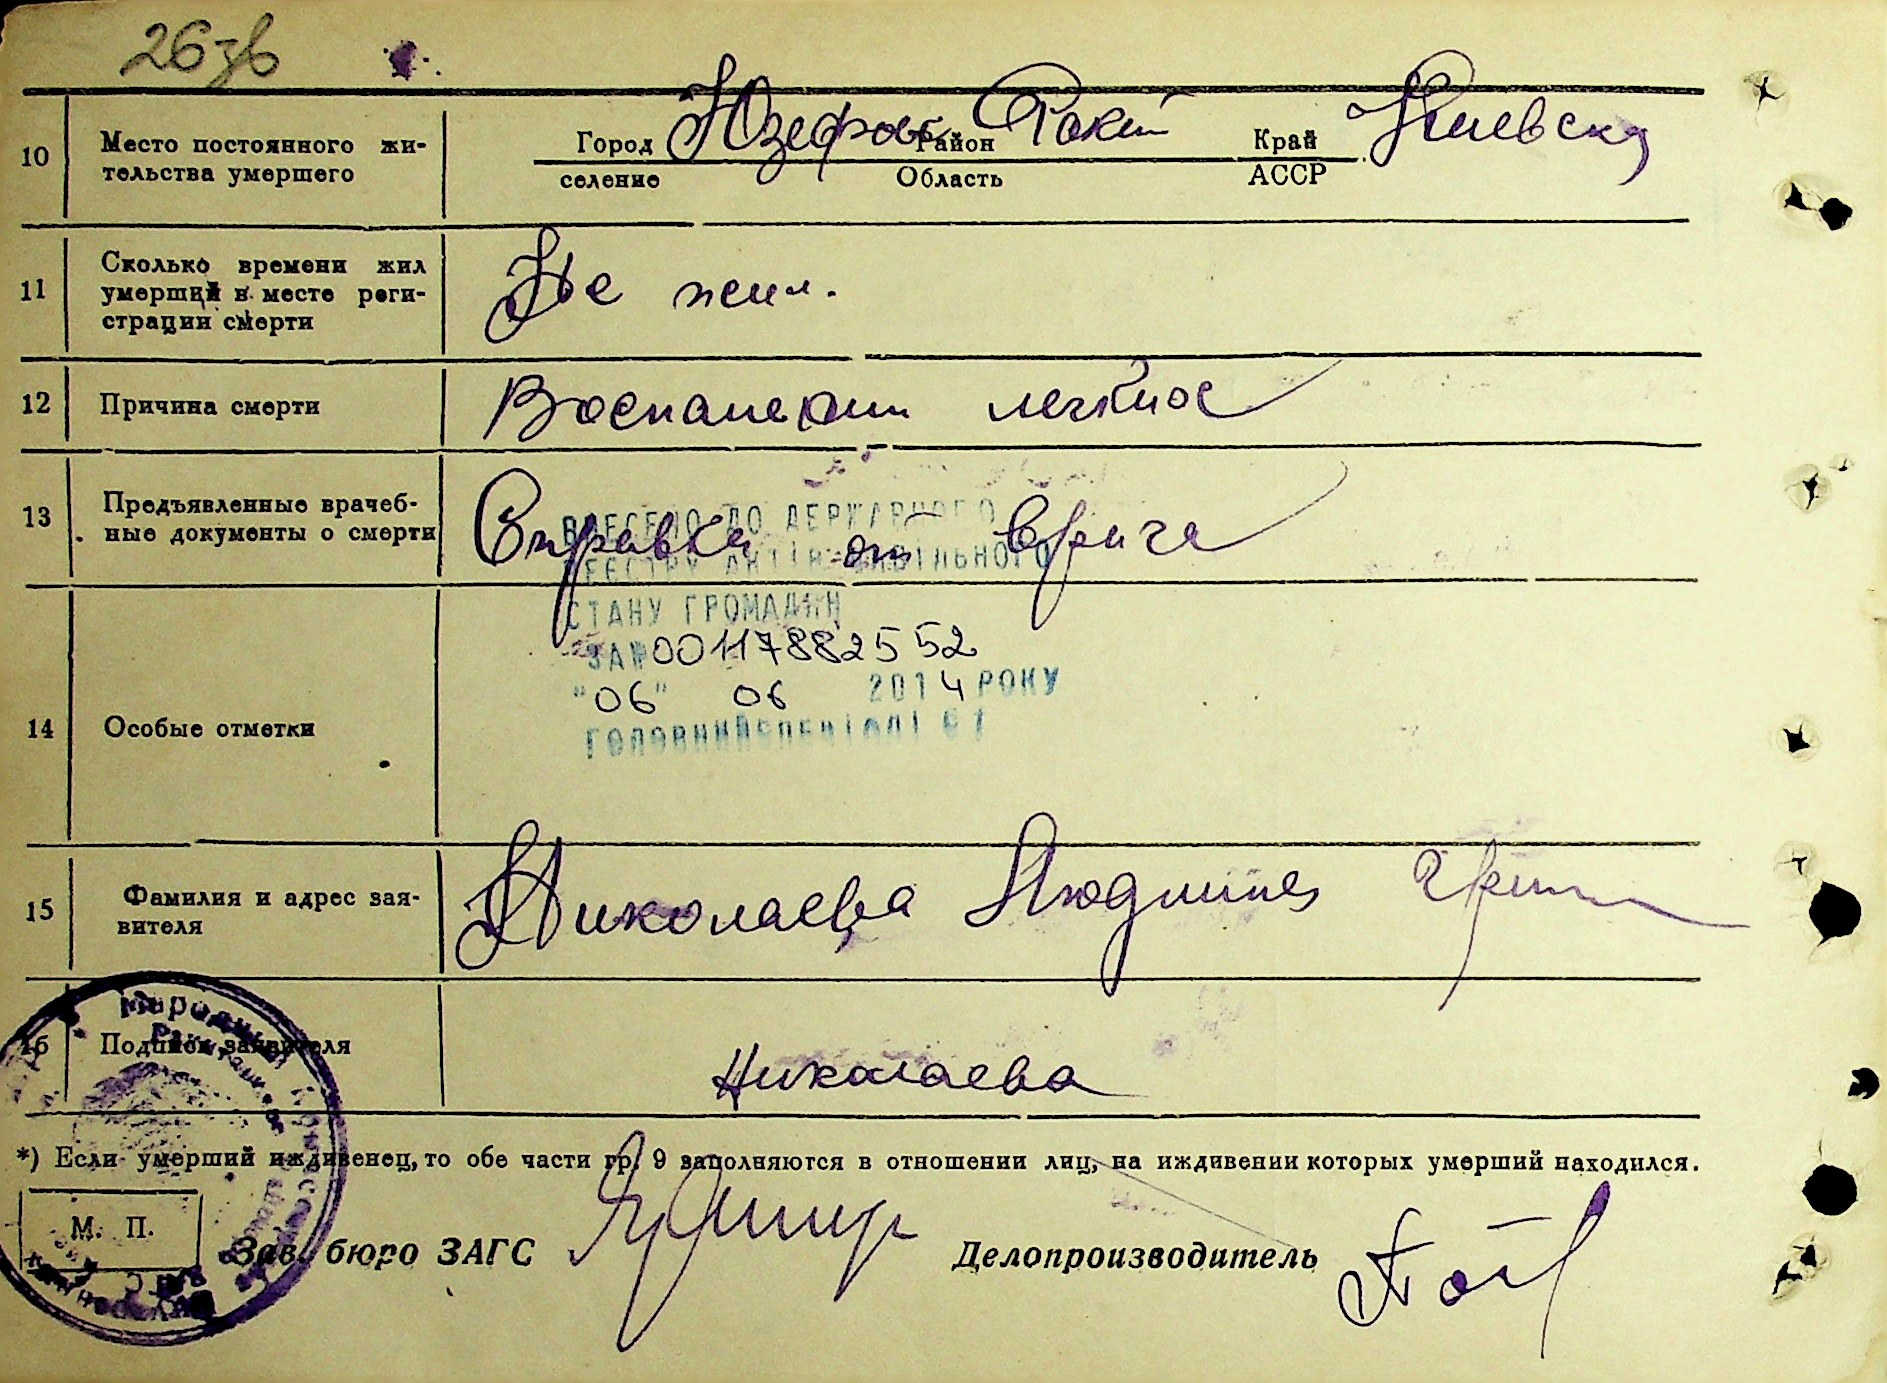 26зв
10 Место постоянного жи-
тельства умершего
Город Юзефов Район Ракит Край Киевска
селение Область АССР
11 Сколько времени жил
умерший в месте реги-
страции смерти
Не жил.
12 Причина смерти Воспаление легкое
13 Предъявленные врачеб-
ные документы о смерти
Справка от врача
ВНЕСЕНО ДО ДЕРЖАВНОГО
РЕЄСТРУ АКТІВ ЦИВІЛЬНОГО
СТАНУ ГРОМАДЯН
ЗА № 00117882552
"06" 06 2014 РОКУ
14 Особые отметки
15 Фамилия и адрес зая-
вителя
Николаева Людмила
16 Подпись заявителя
Николаева
*) Если умерший иждивенец, то обе части гр. 9 заполняются в отношении лиц, на иждивении которых умерший находился.
М. П.
Зав. бюро ЗАГС Делопроизводитель